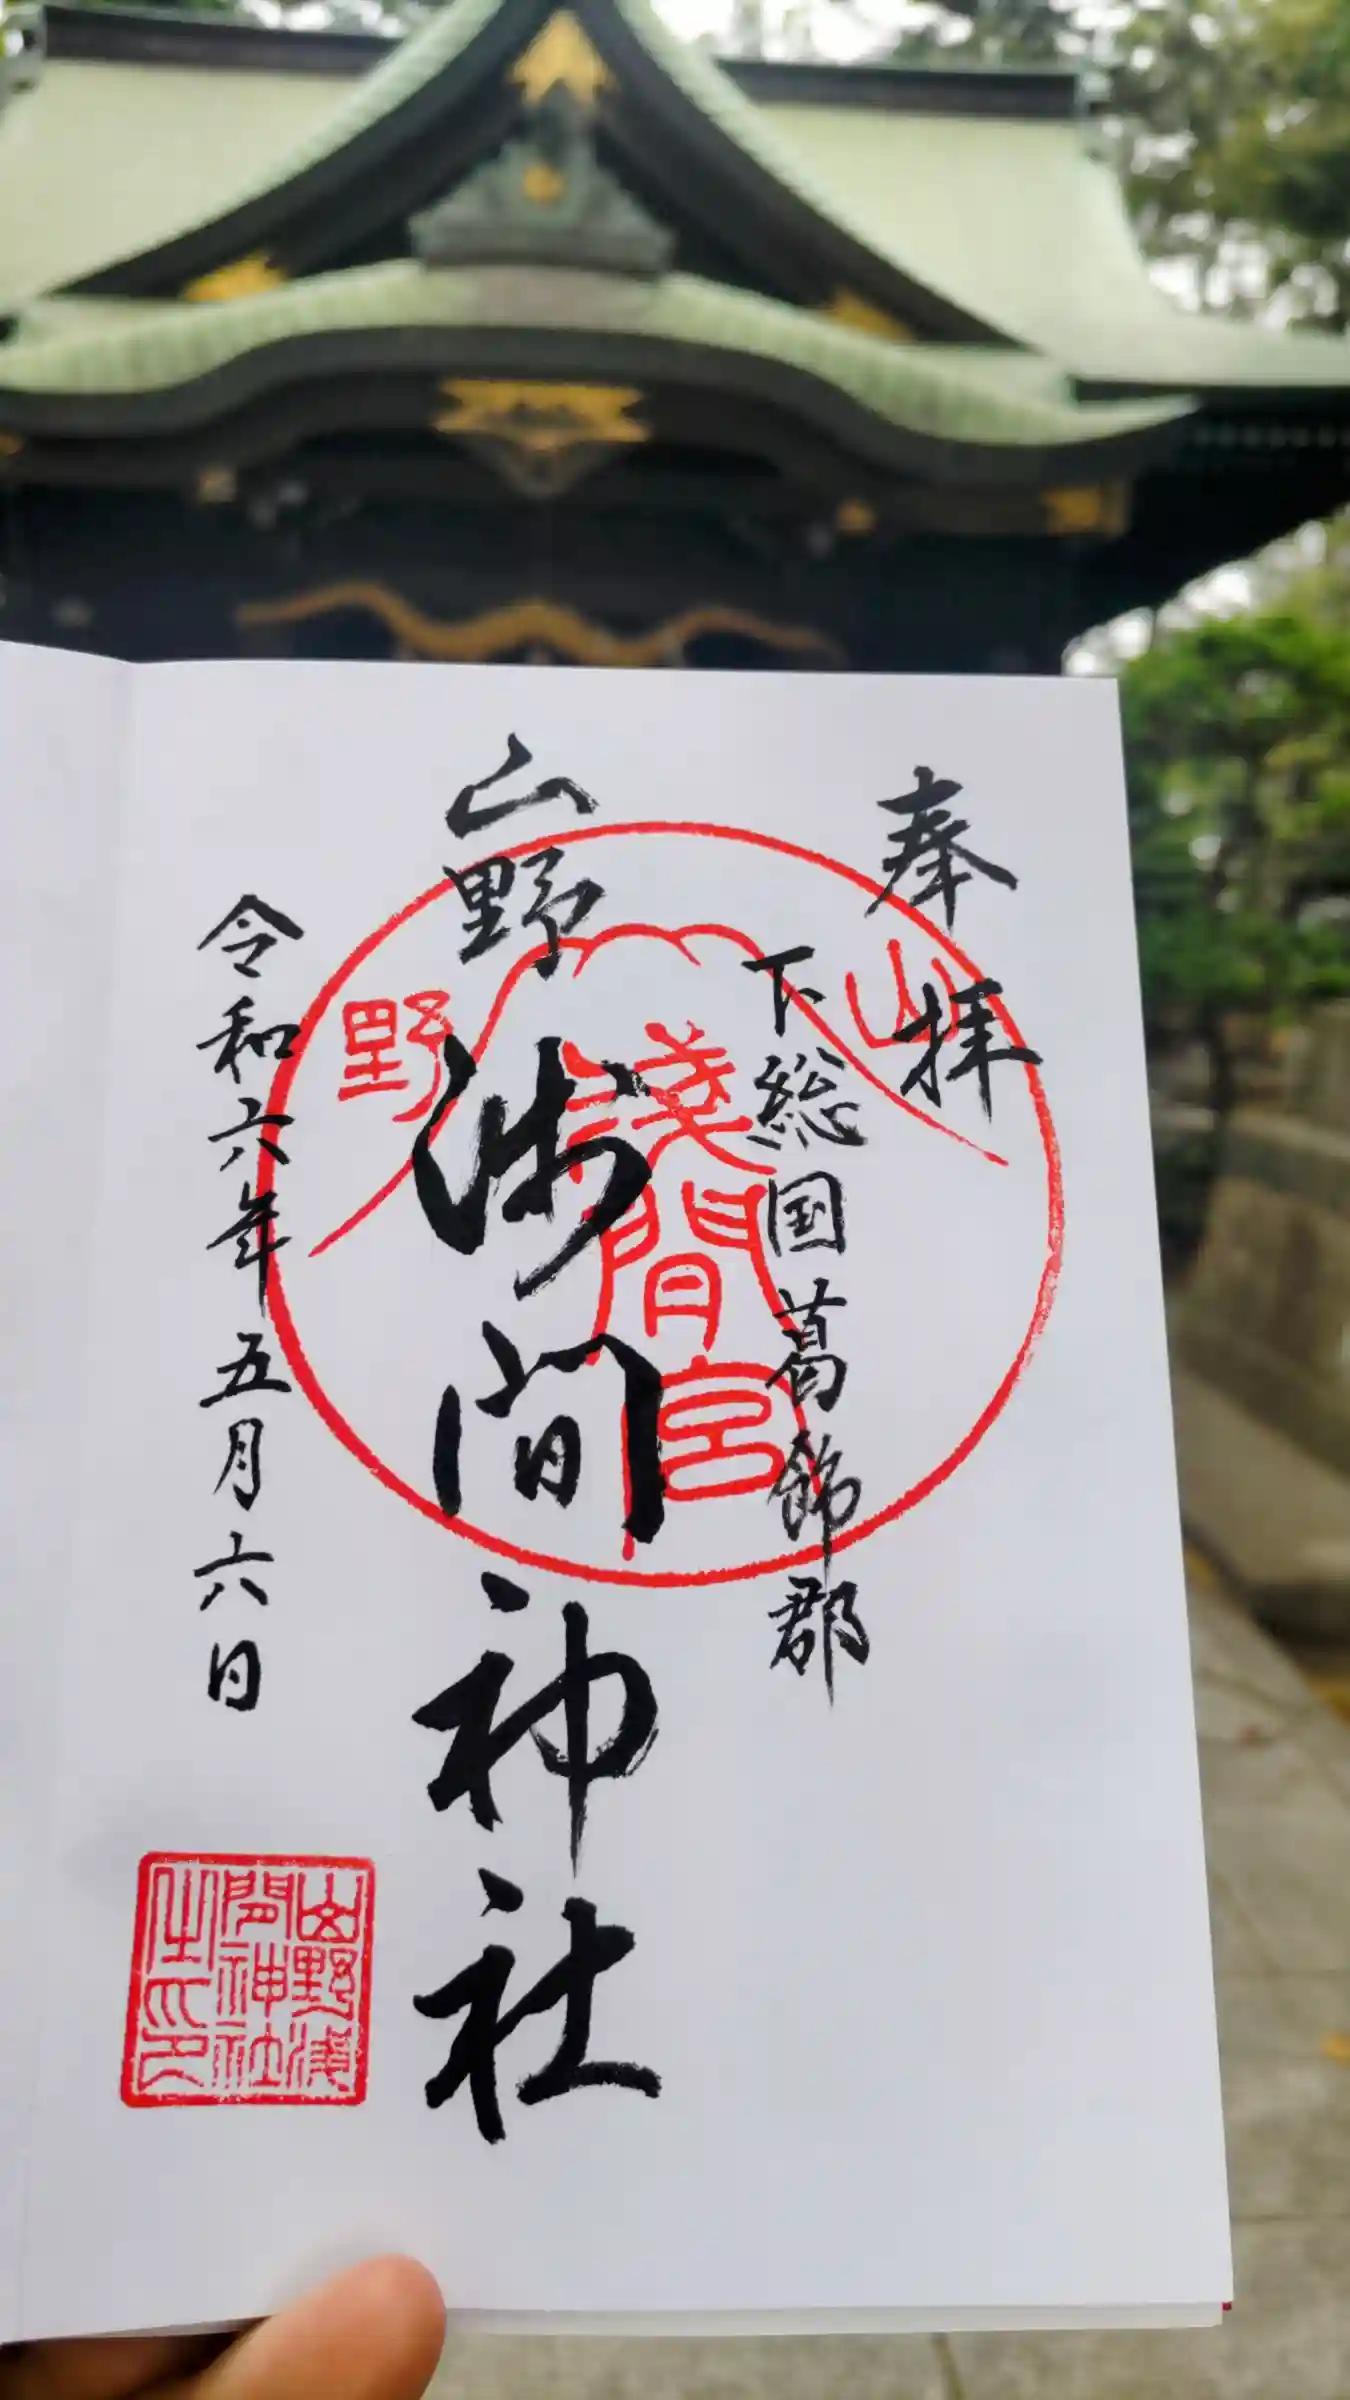 奉拝
下総国葛飾郡
山野
浅間神社
令和六年五月六日
山
野
浅間宮
山野浅
間神社
之印